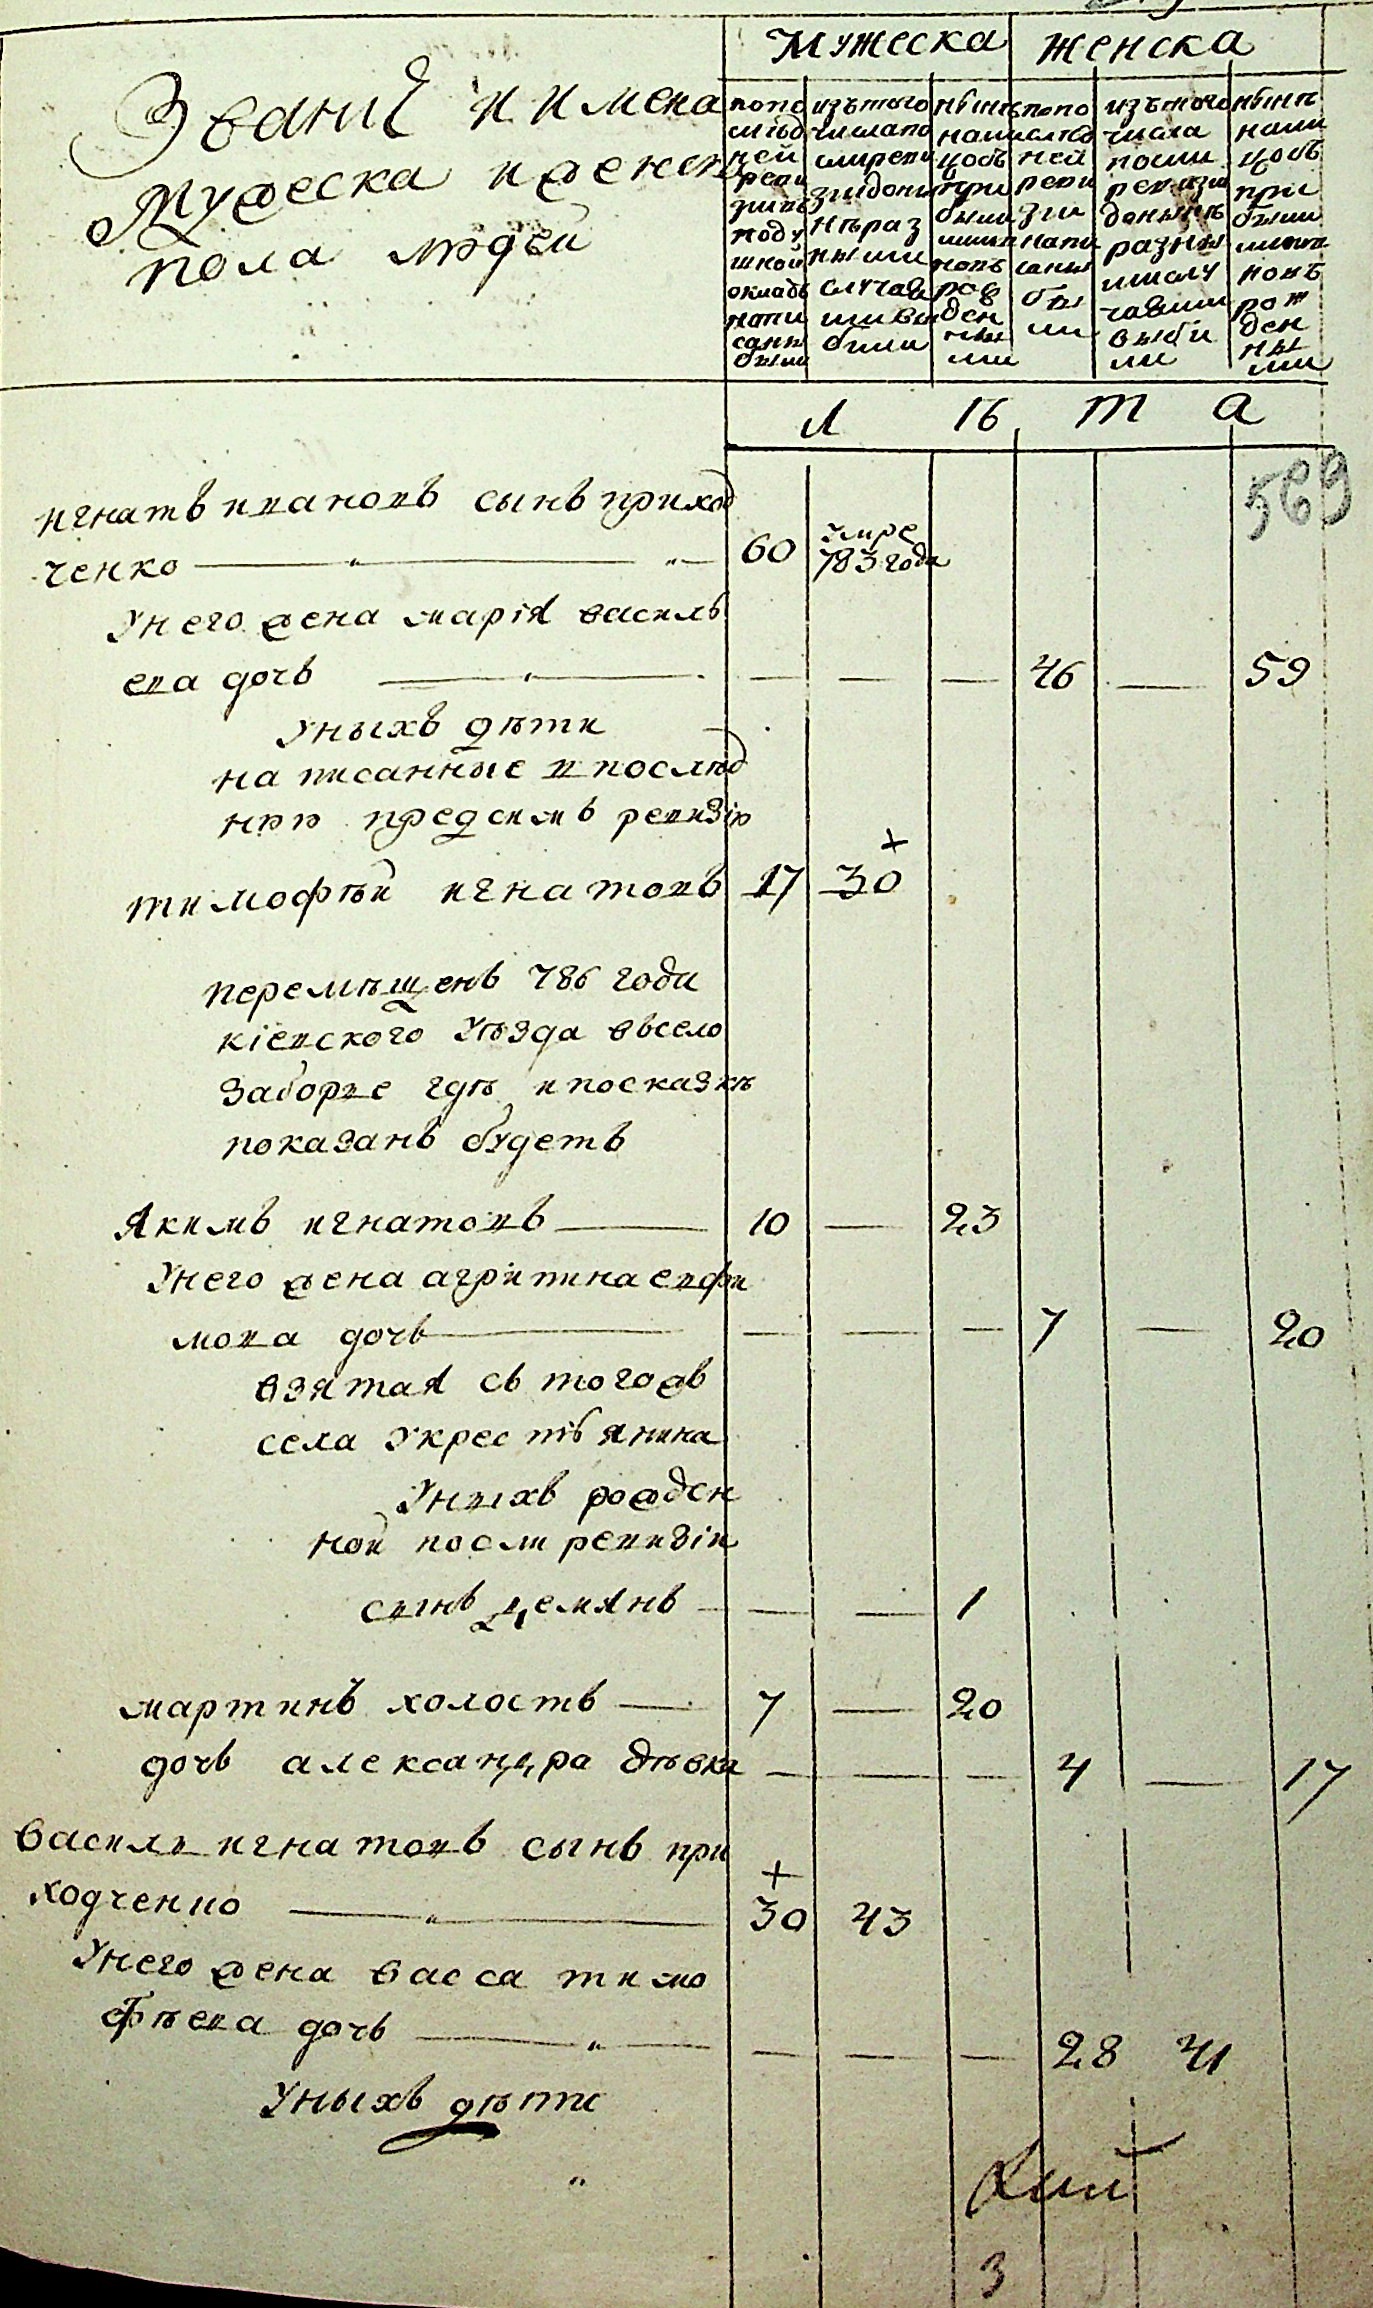 Мужеска женска
Званіе и имена
Мужеска и женска
пола людей
попо
слѣд
ней
реви
зіивъ
поду
шной
окладъ
напи
саны
были
изътого
числапо
слиреви
зіидоны
нѣраз
ными
случая
мивы
были
нынѣ
нали
цобъ
при
были
миит
новъ
рож
ден
ны
ми
попо
слѣд
ней
реви
зіи
напи
саны
бы
ли
изътого
числа
посли
ревизіи
донынѣ
разны
мислу
чаями
выбы
ли
нынѣ
нали
цобъ
при
были
миит
новъ
рож
ден
ны
ми
Л ѣ т а
569
игнатъ ивановъ сынъ приход
ченко 60 умре 783 года
Унего жена марія василь
ева дочь — — — 46 — 59
Уныхъ дѣти
написанные впослѣд
нюю предсимъ ревизію
тимофѣй игнатовъ 17 30
перемѣщенъ 786 года
кіевского уѣзда всело
заборье гдѣ ипосказкѣ
показанъ будетъ
Якимъ игнатовъ — 10 — 23
Унего жена агрипина евфи
мова дочь — — — 7 — 20
взятая съ тогожъ
села укрестьянина
Уныхъ рожден
ной посли ревизіи
сынъ демянъ — — 1
мартинъ холостъ — 7 — 20
дочь александра дѣвка — — — 4 — 17
василь игнатовъ сынъ при
ходченко 30 43
Унего жена васса тимо
фѣева дочь — — — 28 41
Уныхъ дѣти
3